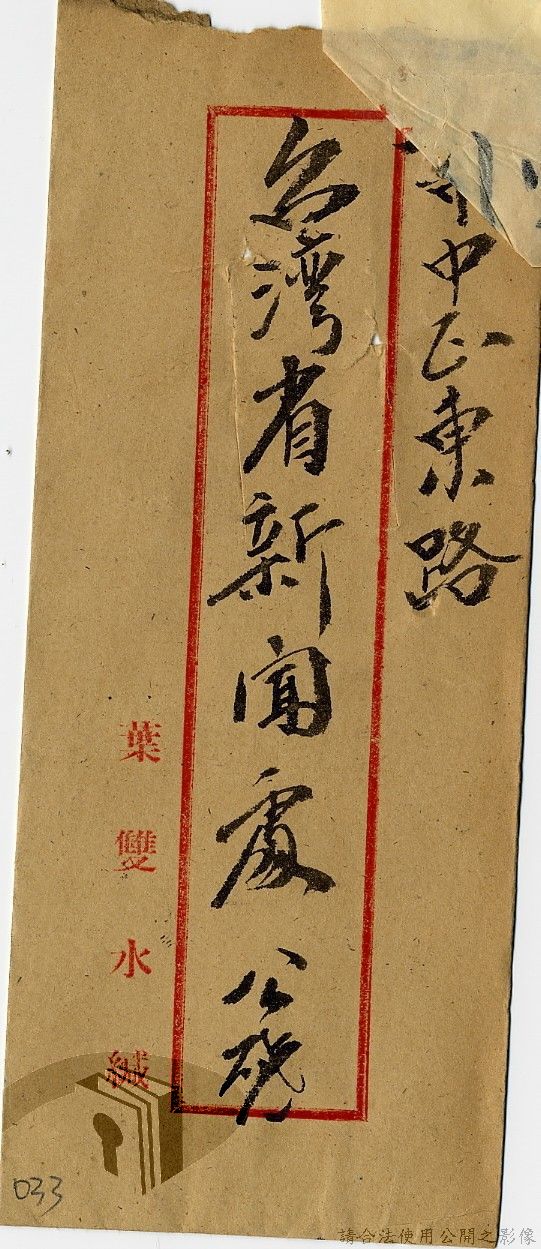 市中正東路
台湾省新闻處 公啓
葉雙水緘
033
請合法使用公開之影像